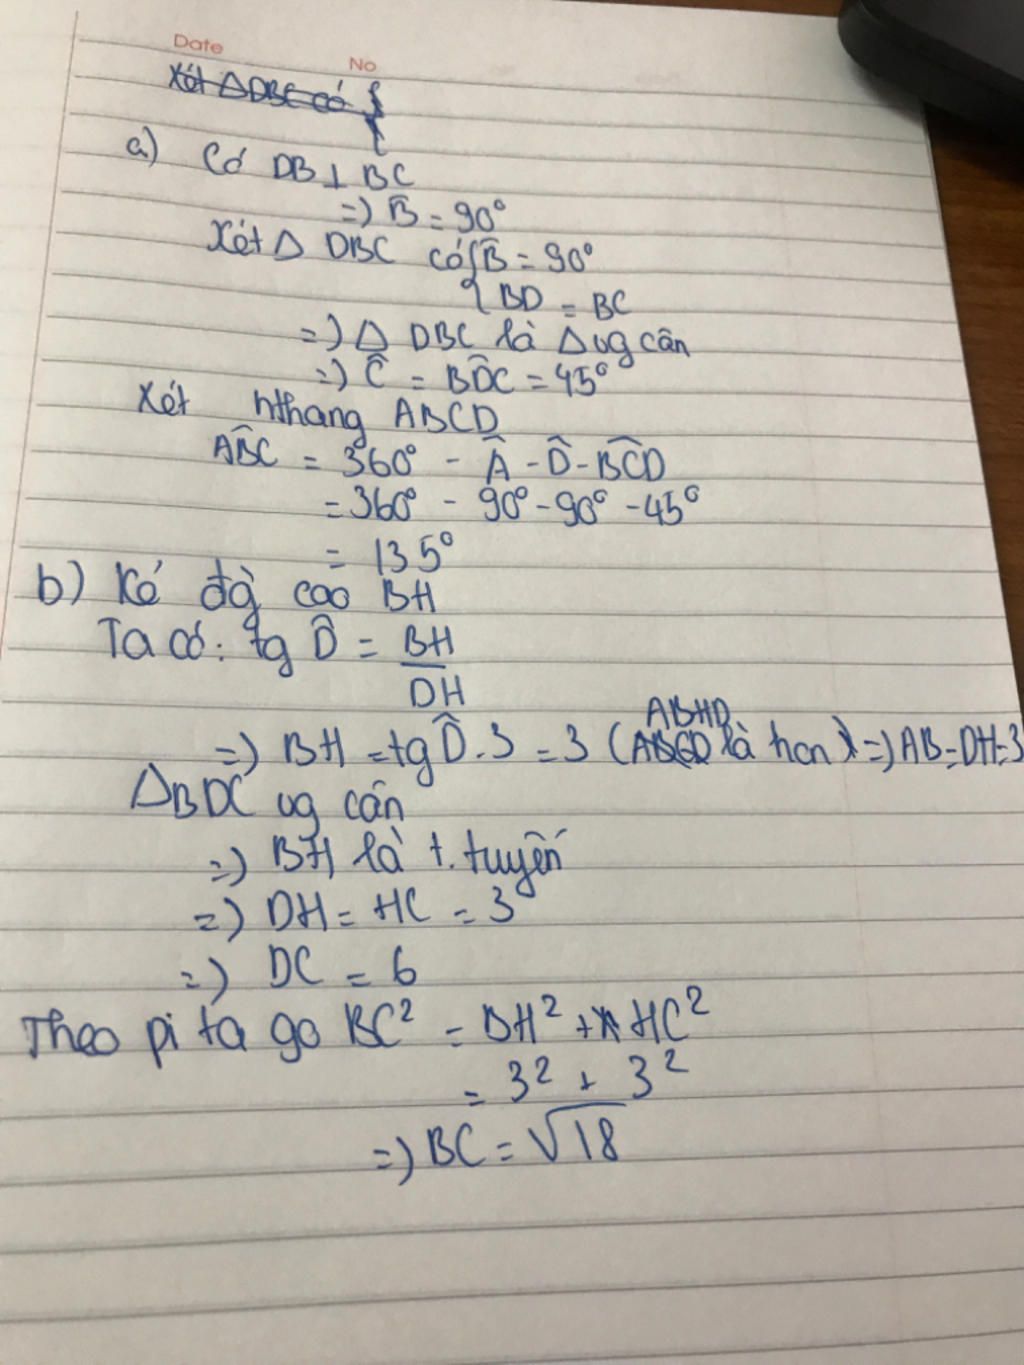 Date
No
Xét △DBC có {
a) Có DB ⊥ BC
=) B̂ = 90°
Xét △ DBC có { B̂ = 90°
{ BD = BC
=) △ DBC là △ vg cân
=) Ĉ = BD̂C = 45°
Xét hthang ABCD
AB̂C = 360° - Â - D̂ - BĈD
= 360° - 90° - 90° - 45°
= 135°
b) Kẻ đg cao BH
Ta có: tg D̂ = BH/DH
ABHD
=) BH = tg D̂ . 3 = 3 (ABCD là hcn) =) AB = DH = 3
△BDC vg cân
=) BH là t. tuyến
=) DH = HC = 3
=) DC = 6
Theo pi ta go BC² = DH² + HC²
= 3² + 3²
=) BC = √18